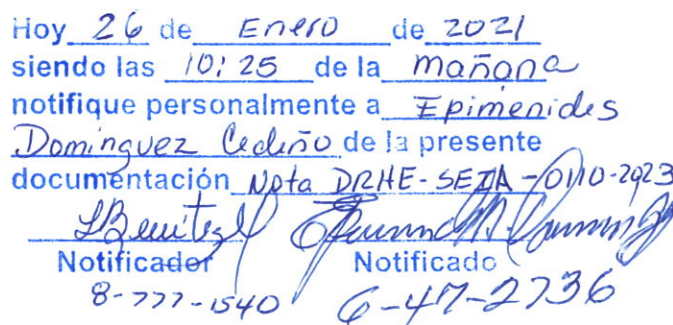 Hoy 26 de Enero de 2021
siendo las 10:25 de la mañana
notifique personalmente a Epimenides
Dominguez Cedeño de la presente
documentación Nota DRHE-SEIA-0110-2023
LBenitez
Notificador Notificado
8-777-1540 6-47-2736